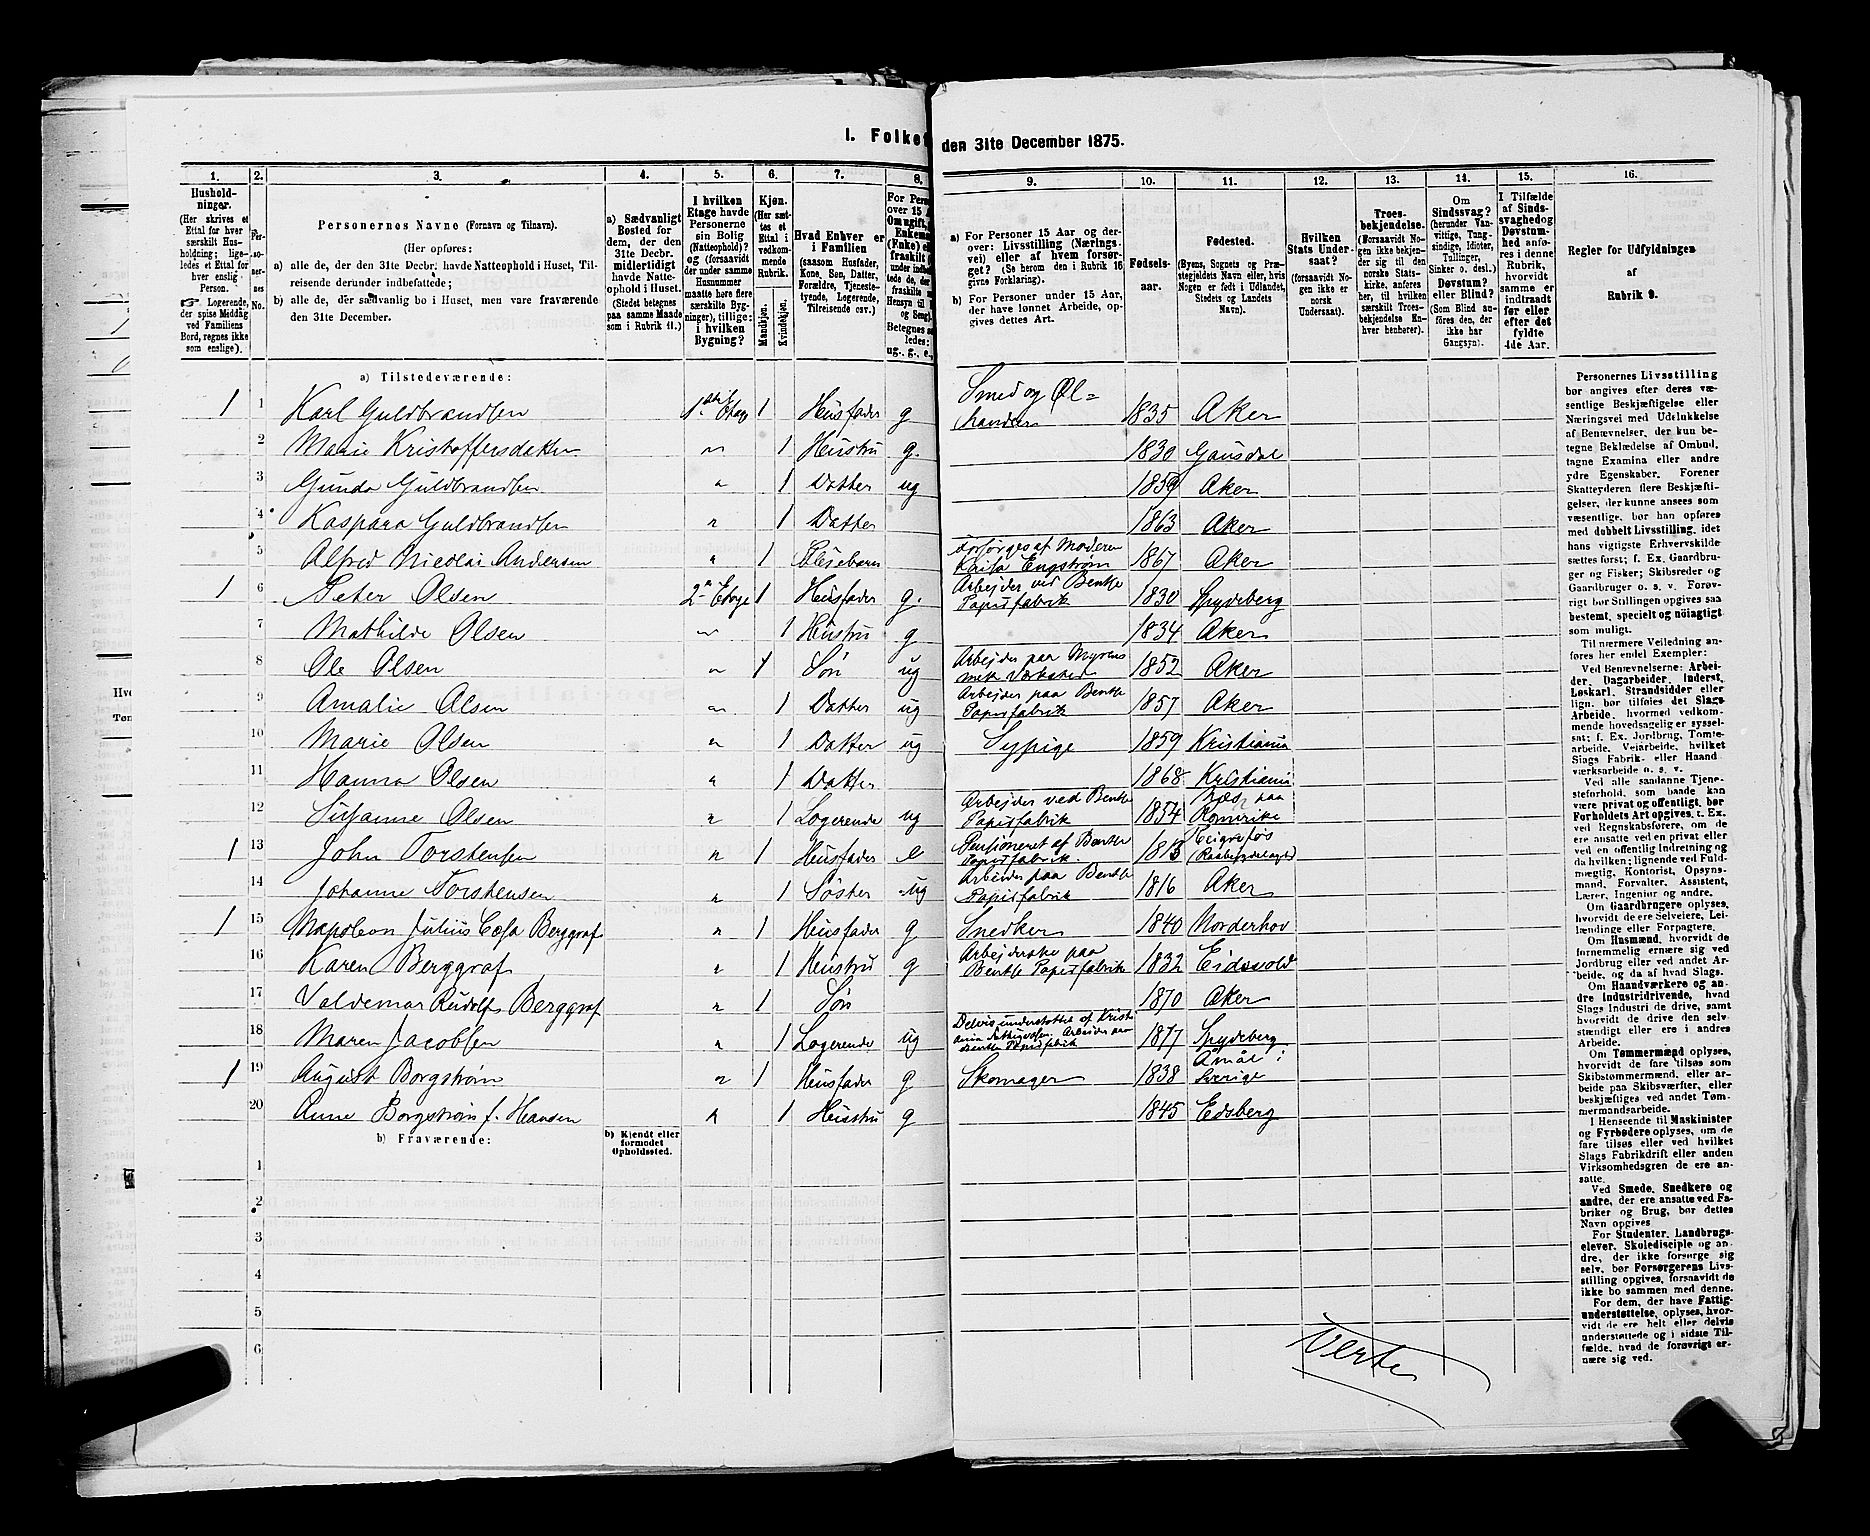 I. Folket den 31te December 1875.
1. 2. 3. 4. 5. 6. 7. 8. 9. 10. 11. 12. 13. 14. 15. 16.
Hushold-
ninger.
(Her skrives et
Ettal for hver
særskilt Hus-
holdning; lige-
ledes et Ettal for
hver enslig
Person.
☞ Logerende,
der spise Middag
ved Familiens
Bord, regnes ikke
som enslige).
Per-
so-
ner-
nes
No.
Personernes Navne (Fornavn og Tilnavn).
(Her opføres:
a) alle de, der den 31te Decbr. havde Natteophold i Huset, Til-
reisende derunder indbefattede;
b) alle de, der sædvanlig bo i Huset, men vare fraværende
den 31te December.
a) Sædvanligt
Bosted for
dem, der den
31te Decbr.
midlertidigt
havde Natte-
ophold i Huset.
(Stedet betegnes
paa samme Maade
som i Rubrik 11.)
I hvilken
Etage havde
Personerne
sin Bolig
(Natteophold)?
og (forsaavidt
der under samme
Husnummer
maatte høre flere
særskilte Byg-
ninger), tillige:
i hvilken
Bygning?
Kjøn.
(Her sæt-
tes et
Ettal i
vedkom-
mende
Rubrik.
Mandkjøn.
Kvindekjøn.
Hvad Enhver er
i Familien
(saasom Husfader,
Kone, Søn, Datter,
Forældre, Tjeneste-
tyende, Logerende,
Tilreisende osv.)
a) For Personer 15 Aar og der-
over: Livsstilling (Nærings-
vei) eller af hvem forsør-
get? (Se herom den i Rubrik 16
givne Forklaring).
b) For Personer under 15 Aar,
der have lønnet Arbeide, op-
gives dettes Art.
Fødsels-
aar.
Fødested.
(Byens, Sognets og Præ-
stegjeldets Navn eller, hvis
Nogen er født i Udlandet,
Stedets og Landets
Navn).
Hvilken
Stats Under-
saat?
(forsaavidt No-
gen ikke er
norsk
Undersaat).
Troes-
bekjendelse.
(Forsaavidt No-
gen ikke bekjen-
der sig til den
norske Stats-
kirke, anføres
her, til hvilken
særskilt Troes-
bekjendelse En-
hver henhører).
Om
Sindssvag?
(herunder Van-
vittige, Tung-
sindige, Idioter,
Tullinger,
Sinker o. desl.)
Døvstum?
eller Blind?
(Som Blind an-
føres den, der
ikke har
Gangsyn).
I Tilfælde
af Sinds-
svaghed og
Døvstum-
hed anfø-
res i denne
Rubrik,
hvorvidt
samme er
indtraadt
før eller
efter det
fyldte
4de Aar.
Regler for Udfyldningen
af
Rubrik 9.
a) Tilstedeværende:
1 1 Karl Guldbrandsen 1ste Etage 1 Husfader g Smed og Øl=
handler 1835 Aker
2 Marie Kristoffersdatter " 1 Hustru g. 1830 Gausdal
3 Gunda Guldbrandsen " 1 Datter ug 1859 Aker
4 Kaspara Guldbrandsen " 1 Datter 1863 Aker
5 Alfred Nicolai Andersen " 1 Pleiebarn Forsørges af Moderen
Kaisa Engstrøm 1867 Aker
1 6 Peter Olsen 2den Etage 1 Husfader g. Arbejder ved Bentse
Papirfabrik 1830 Spydeberg
7 Mathilde Olsen " 1 Hustru g 1834 Aker
8 Ole Olsen " 1 Søn ug Arbejder paa Myrens
mek Værksted 1852 Aker
9 Amalie Olsen " 1 Datter ug Arbejder paa Bentse
Papirfabrik 1857 Aker
10 Marie Olsen " 1 Datter ug Sypige 1859 Kristiania
11 Hanna Olsen " 1 Datter 1868 Kristiania
12 Susanne Olsen " 1 Logerende ug Arbejder ved Bentse
Papirfabrik 1854 Næs paa
Romerike
1 13 John Torstensen " 1 Husfader e Pensioneret af Bentse
Papirfabrik. 1813
14 Johanne Torstensen " 1 Søster ug Arbejder paa Bentse
Papirfabrik 1816 Aker
1 15 Napoleon Julius Cæsa Berggraf " 1 Husfader g Snedker 1840 Norderhov
16 Karen Berggraf " 1 Hustru g Arbejderske paa
Bentse Papirfabrik 1832 Eidsvold
17 Valdemar Rudolf Berggraf " 1 Søn 1870 Aker
18 Maren Jacobsen " 1 Logerende ug Delvis understøttet af Kristi
ania Fattigvæsen. Arbejder paa
Bentse Papirfabrik 1877 Spydeberg
1 19 August Borgstrøm " 1 Husfader g Skomager 1838 Åmål i
Sverige
20 Anne Borgstrøm f. Hansen " 1 Hustru g 1845 Edsberg
b) Fraværende:
b) Kjendt eller
formodet
Opholdssted.
1
2
3
4
5
6
Verte
Personernes Livsstilling
bør angives efter deres væ-
sentlige Beskjæftigelse eller
Næringsvei med Udelukkelse
af Benævnelser, der kun be-
tegne Beklædelse af Ombud,
tagne Examina eller andre
ydre Egenskaber. Forener
Skatteyderen flere Beskjæfti-
gelser, der kunne ansees som
væsentlige, bør han opføres
med dobbelt Livsstilling, idet
hans vigtigste Erhvervskilde
sættes først; f. Ex. Gaardbru-
ger og Fisker; Skibsreder og
Gaardbruger o. s. v. Forøv-
rigt bør Stillingen opgives saa
bestemt, specielt og nøiagtigt
som muligt.
Til nærmere Veiledning an-
føres her endel Exempler:
Ved Benævnelserne: Arbei-
der, Dagarbeider, Inderst,
Løskarl, Strandsidder eller
lign. bør tilføies det Slags
Arbeide, hvormed vedkom-
mende hovedsagelig er syssel-
sat; f. Ex. Jordbrug, Tomte-
arbeide, Veiarbeide, hvilket
Slags Fabrik- eller Haand
værksarbeide o. s. v.
Ved alle saadanne Tjene-
steforhold, som baade kan
være privat og offentligt, bør
Forholdets Art opgives, t. Ex.
ved Regnskabsførere, om de
ere ansatte ved en privat eller
ved en offentlig Indretning og
da hvilken; lignende ved Fuld-
mægtig, Kontorist, Opsyns-
mand, Forvalter, Assistent,
Lærer, Ingeniør og andre.
Om Gaardbrugere oplyses,
hvorvidt de ere Selveiere, Lei-
lændinge eller Forpagtere.
Om Husmænd, hvorvidt de
fornemmelig ernære sig ved
Jordbrug eller ved andet Ar-
beide, og da af hvad Slags.
Om Haandværkere og an-
dre Industridrivende, hvad
Slags Industri de drive, samt
hvorvidt de drive den selv-
stændigt eller ere i andres
Arbeide.
Om Tømmermænd oplyses,
hvorvidt de fare tilsøs som
Skibstømmermænd, eller ar-
beide paa Skibsværfter, eller
beskjæftiges ved andet Tøm-
mermandsarbeide.
I Henseende til Maskinister
og Fyrbødere oplyses, om de
fare tilsøs eller ved hvilket
Slags Fabrikdrift eller anden
Virksomhedsgren de ere an-
satte.
Ved Smede, Snedkere og
andre, der ere ansatte ved Fa-
briker og Brug, bør dettes
Navn opgives.
For Studenter, Landbrugs-
elever, Skoledisciple og an-
dre, der ikke forsørge sig
selv, bør Forsørgerens Livs-
stilling opgives, forsaavidt de
ikke bo sammen med denne.
For dem, der have Fattig-
understøttelse, oplyses, hvor-
vidt de ere helt eller delvis
understøttede og i sidste Til-
fælde, hvad de forøvrigt er-
nære sig ved.